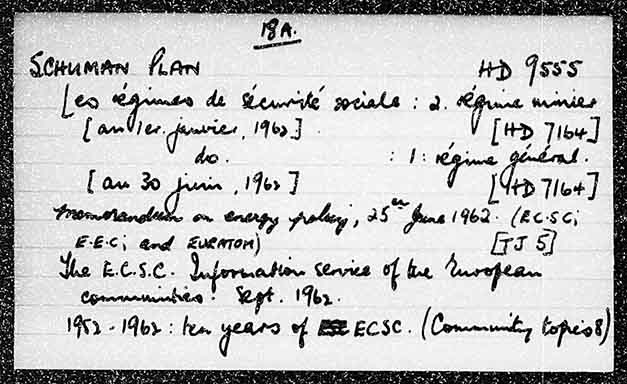 18A.
SCHUMAN PLAN HD 9555
Les régimes de sécurité sociale : 2. régime minier
[au 1er. janvier, 1962.] [HD 7164]
do. : 1 : régime général.
[au 30 juin, 1962] [HD 7164]
Memorandum on energy policy, 25th June 1962. (E.C.S.C;
E.E.C; and EURATOM) [TJ 5]
The E.C.S.C. Information service of the European
communities. Sept. 1962.
1952-1962: ten years of ECSC. (Community topics 8)